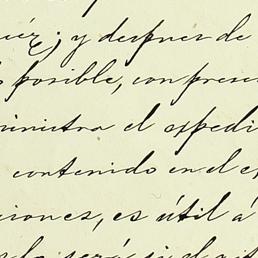 uéz; y despues de
posible, con presen
ministra el espedi
contenido en el e
ciones, es útil á